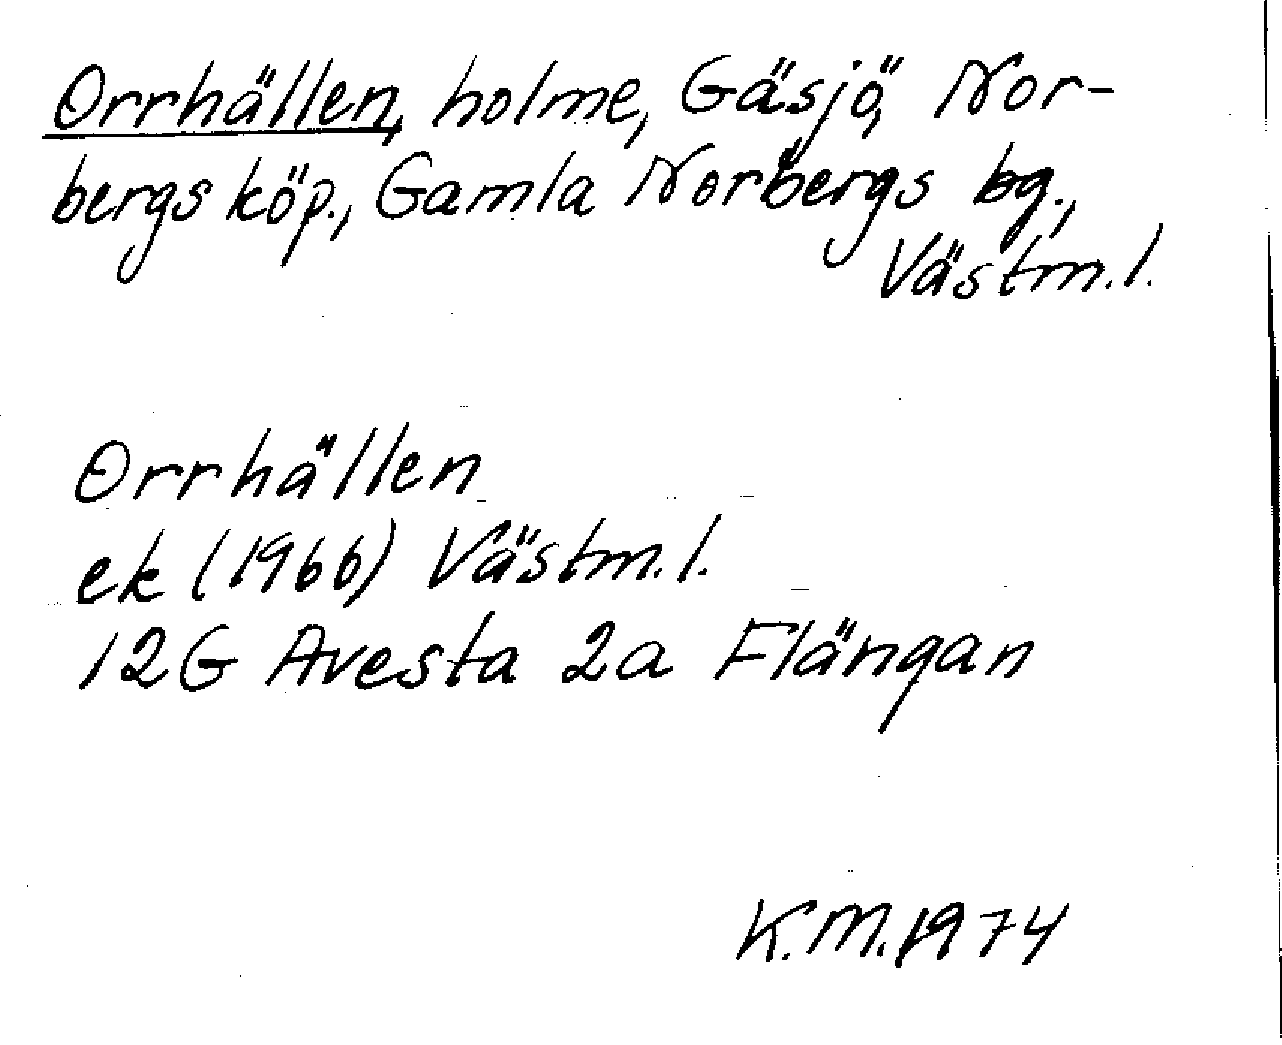 Orrhällen, holme, Gäsjö, Nor-
bergs köp., Gamla Norbergs bg.,
Västm.l.
Orrhällen
ek (1966) Västm.l.
12G Avesta 2a Flängan
K.M.1974